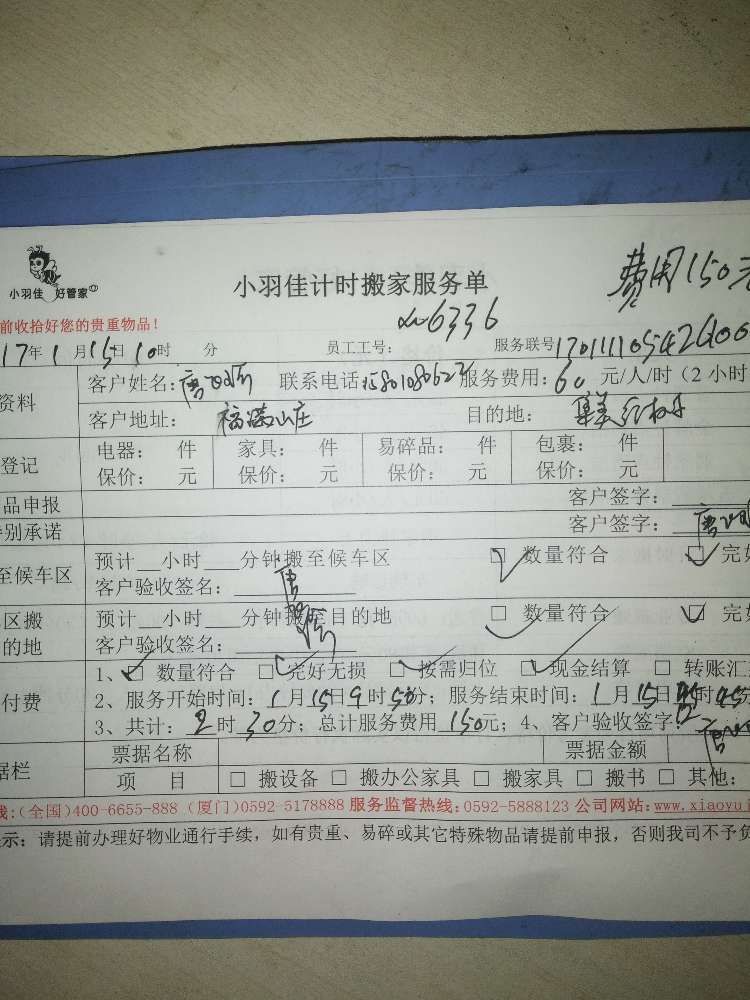 小羽佳 好管家
小羽佳计时搬家服务单
费用150元
前收拾好您的贵重物品!
6336
17年1月15日10时 分 员工工号: 服务联号
资料 客户姓名: 联系电话: 服务费用:60元/人/时(2小时
客户地址: 福满山庄 目的地: 集美
登记 电器: 件 家具: 件 易碎品: 件 包裹: 件
保价: 元 保价: 元 保价: 元 保价: 元
品申报 客户签字:
特别承诺 客户签字:
至候车区 预计__小时___分钟搬至候车区 □ 数量符合 □ 完好
客户验收签名:
区搬 预计__小时___分钟搬至目的地 □ 数量符合 □ 完好
的地 客户验收签名:
付费 1、□ 数量符合 □ 完好无损 □ 按需归位 □ 现金结算 □ 转账汇
2、服务开始时间:1月15日9时50分;服务结束时间:1月15日 时45分
3、共计:2时30分;总计服务费用150元;4、客户验收签字:
据栏 票据名称 票据金额
项 目 □ 搬设备 □ 搬办公家具 □ 搬家具 □ 搬书 □ 其他:
线:(全国)400-6655-888 (厦门)0592-5178888 服务监督热线:0592-5888123 公司网站:www.xiaoyuj
示:请提前办理好物业通行手续,如有贵重、易碎或其它特殊物品请提前申报,否则我司不予负